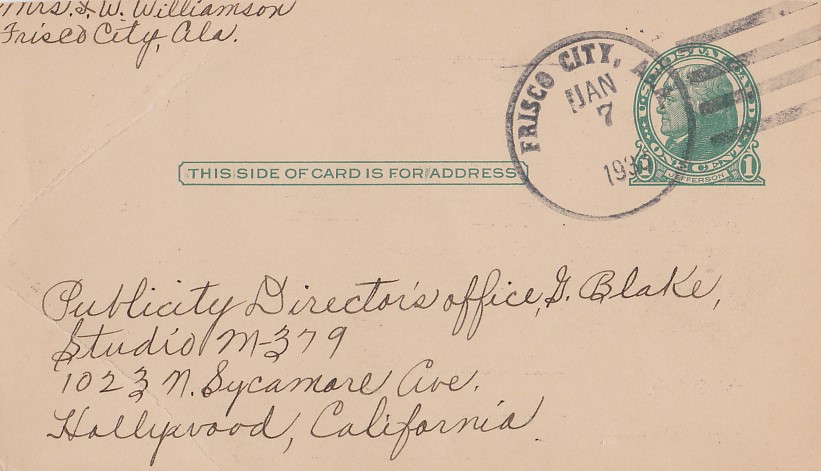 Mrs. F. W. Williamson
Frisco City, Ala.
FRISCO CITY, A
JAN
7
U.S. POSTAL CARD
ONE CENT
1 1
JEFFERSON
THIS SIDE OF CARD IS FOR ADDRESS
Publicity Director's office, G. Blake,
Studio M-379
1023 N. Sycamore Ave.
Hollywood, California